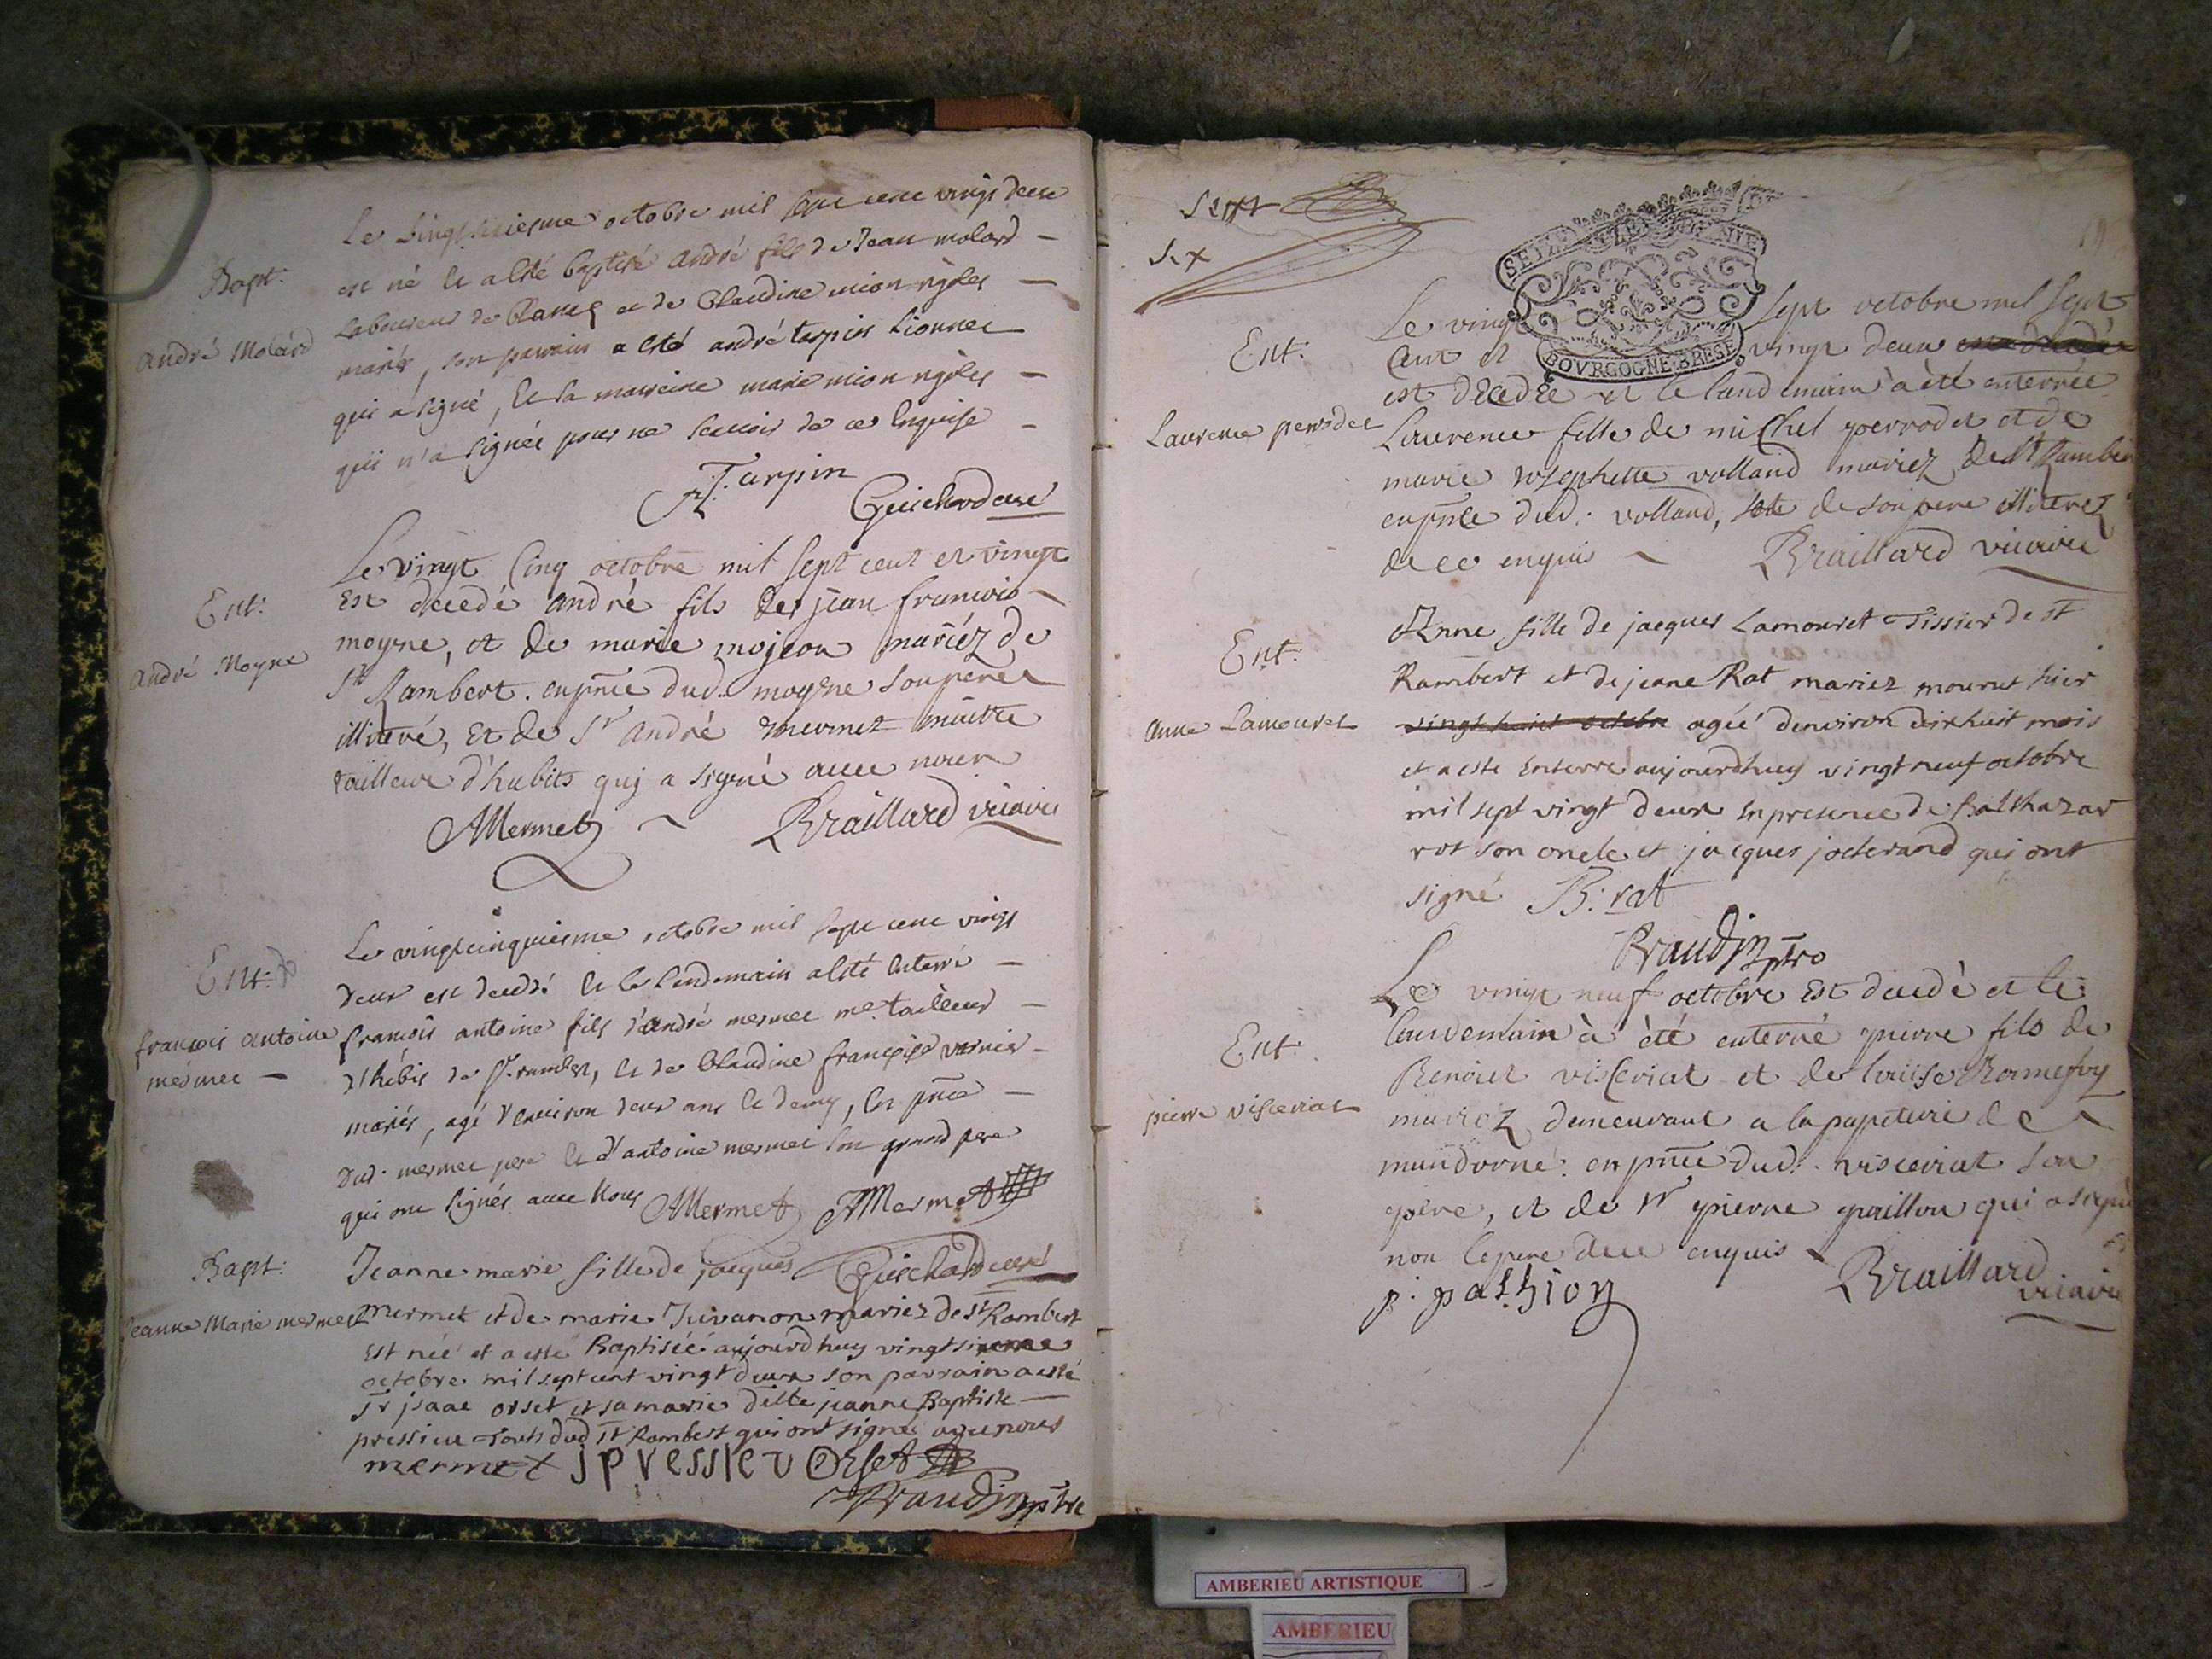 Bapt.
André Molard
Le vingtsixiesme octobre mil sept cent vingt deux
est né et a esté baptisé André fils de Jean molard
laboureur de blanaz et de Claudine mion rigoles
mariés, son parrain a esté andré tarpin Lionnet
qui a signé, et sa marreine marie mion rigoles
qui n'a signée pour ne scavoir de ce enquise
A. Tarpin
Guichard curé
Ent:
André Moyne
Le vingt cinq octobre mil sept cent et vingt
Est decedé andré fils de jean francois
moyne, et de marie mojeon mariéz de
St Rambert. en pnce dud. moyne son pere
illiteré, Et de Sr André mermet maitre
tailleur d'habits qui a signé avec nous
AMermet
Braillard vicaire
Ent.
françois antoine
mermet
Le vingtcinquiesme octobre mil sept cent vingt
deux est decedé et le lendemain a esté enterré
francois antoine fils d'andré mermet me tailleur
d'habis de St rambert, et de Claudine françoise vernier
mariés, agé d'environ deux ans et demy, en pnce
dud. mermet pere et d'antoine mermet son grand pere
qui ont signés avec Nous AMermet AMermet
Guichard curé
Bapt:
Jeanne Marie mermet
Jeanne marie fille de jacques
mermet et de marie Juvanon mariez de St Rambert
est née et a esté Baptisée aujourd huy vingt sixieme
octobre mil sept cent vingt deux son parrain a esté
sr jsaac orset et sa marie dlle jeanne Baptiste
pressieu touts dud St Rambert qui ont signé avec nous
mermet jpressieu Orset
Braudin ptre
Sept
Six
SEIZE DENIE
BOVRGOGNE BRESE
Ent:
Laurence perrodet
Le vingt sept octobre mil sept
cent et vingt deux
est décedée et le landemain à été enterrée
Laurence fille de michel perrodet et de
marie Josephette volland mariez de St Rambert
en pnce dud. volland, de son pere illiterez
de ce enquis Braillard vicaire
Ent:
Anne Lamouret
Anne fille de jacques Lamouret Tissier de St
Rambert et de jeane Rat mariez mourut hier
vingt huit octobre agée denviron dix huit mois
et a este Enterré aujourdhuy vingt neuf octobre
mil sept vingt deux en presence de Balthazar
rat son oncle et jacques jocterand qui ont
signé B. rat
Braudin ptre
Ent:
pierre visceriat
Le vingt neuf octobre Est decedé et le
landemain à été enterré pierre fils de
Benoict visceriat et de louise Bonnefoy
mariez demeurant a la papeterie de
en pnce dud. visceriat son
père, et de Sr pierre paillon qui a signé
non le pere de ce enquis
p. pathion
Braillard
vicaire
AMBERIEU ARTISTIQUE
AMBERIEU